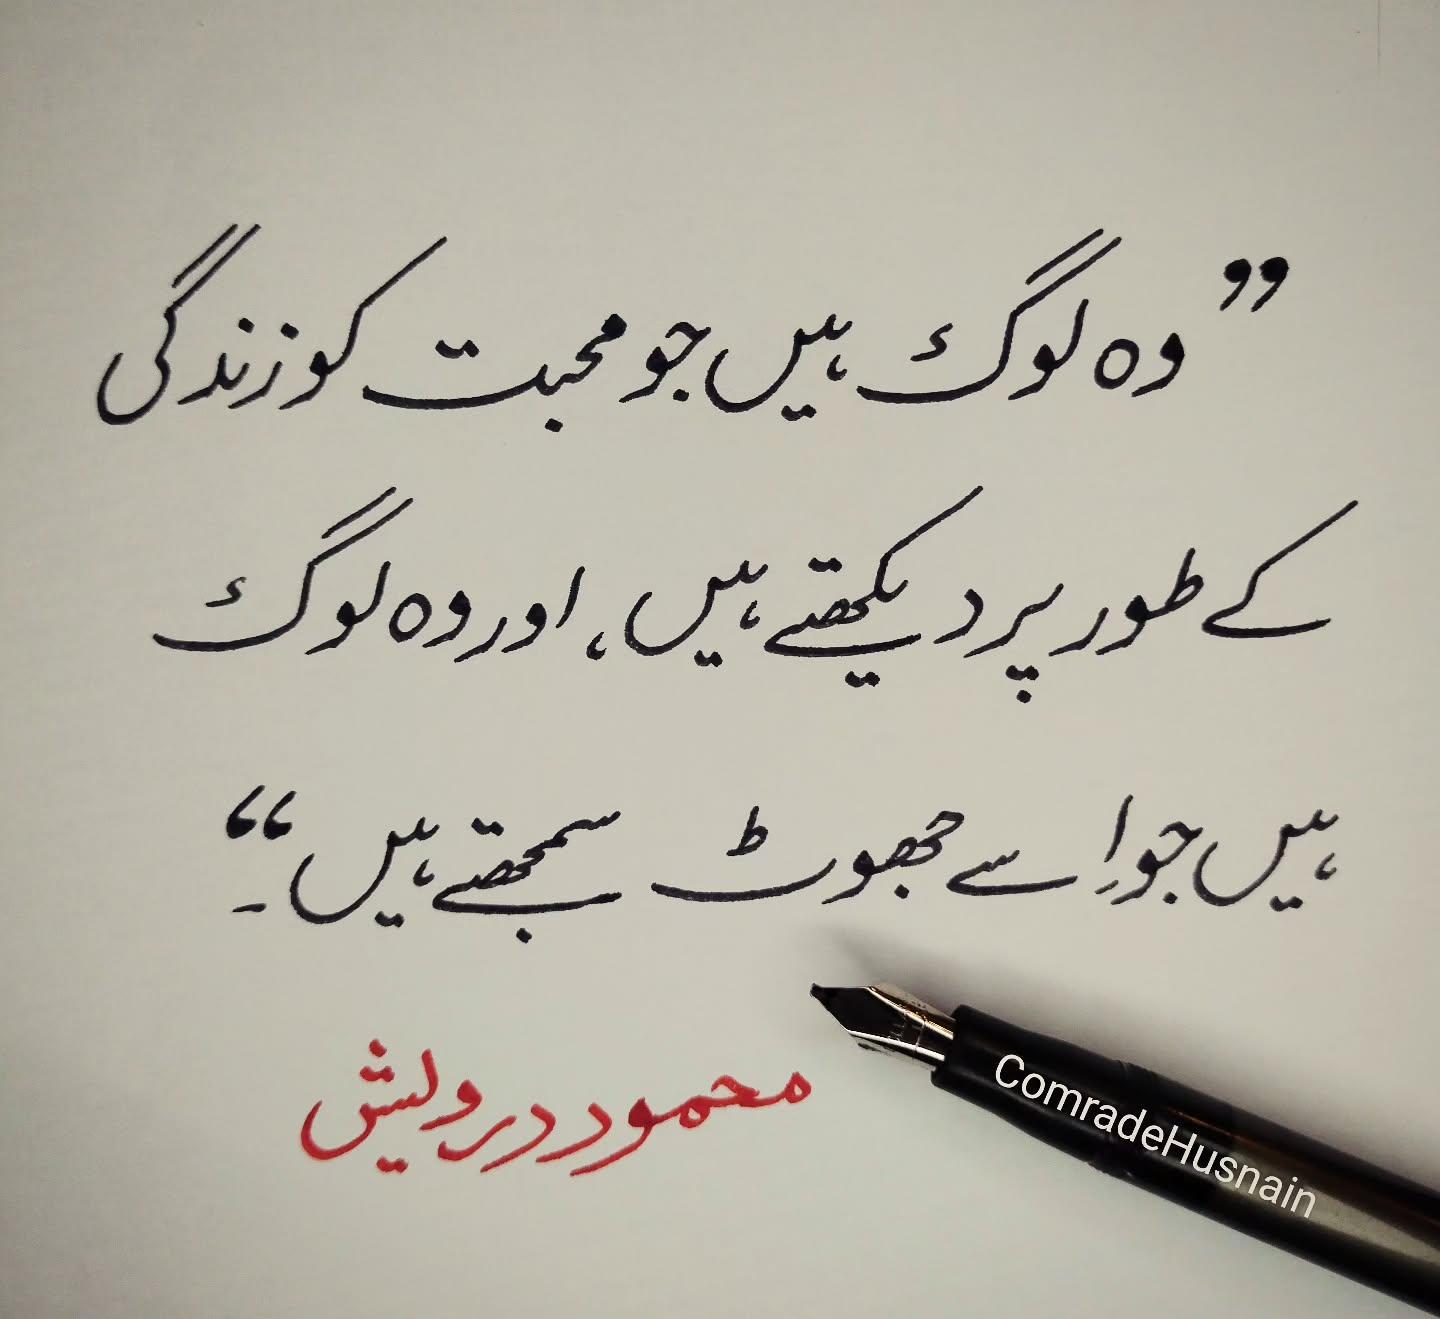 ”وہ لوگ ہیں جو محبت کو زندگی
کے طور پر دیکھتے ہیں، اور وہ لوگ
ہیں جو اِسے جھوٹ سمجھتے ہیں۔“
محمود درویش
ComradeHusnain